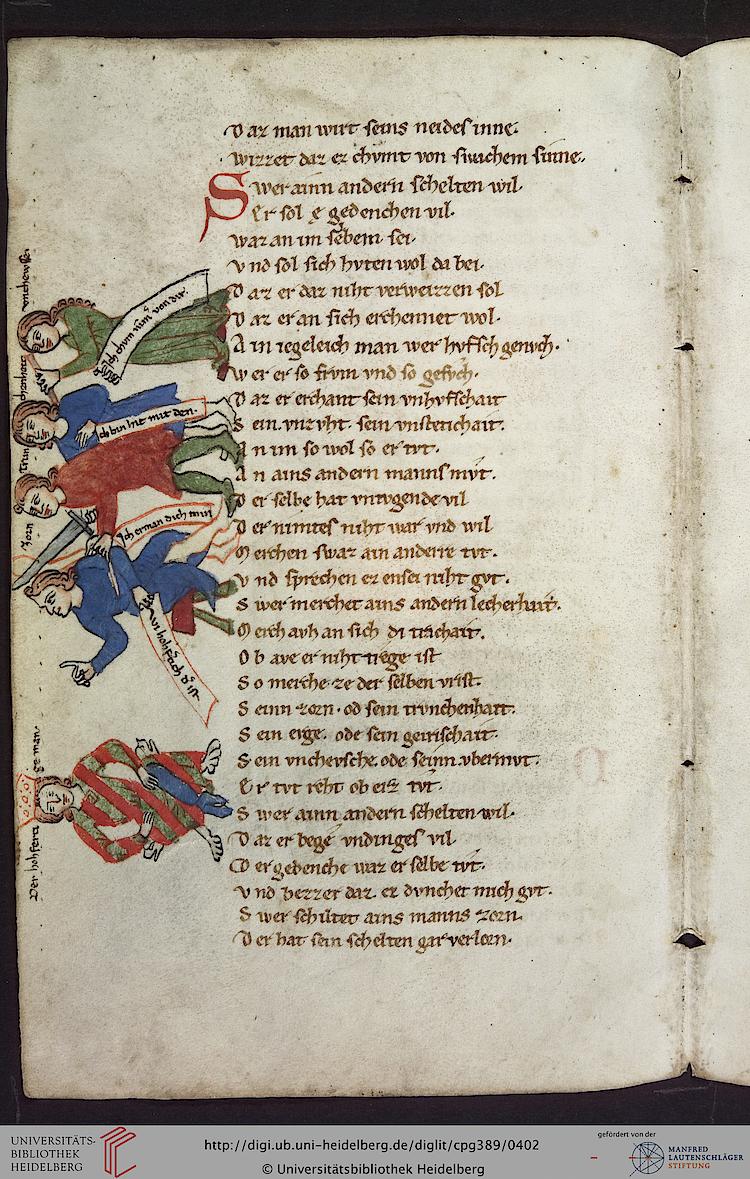 Daz man wirt seins neides inne.
wizzet daz ez chvmt von siuichem sinne.
Swer ainn andern schelten wil.
Er sol e gedenchen vil.
waz an im selbem sei.
vnd sol sich hvten wol da bei.
Daz er daz niht verweizzen sol
Daz er an sich erchennet wol.
Ain iegeleich man wer hvfsch genvch.
wer er so frvm vnd so gefvch.
Daz er erchant sein vnhvfschait
Sein vnzvht. sein vnstetichait.
An im so wol so er tvt.
An ains andern manns mvt.
Der selbe hat vntvgende vil
Der nimtes niht war vnd wil
Merchen swaz ain anderre tvt.
vnd sprechen ez ensei niht gvt.
Swer merchet ains andern lecherhait.
Merch avh an sich di trachait.
Ob ave er niht trege ist
So merche ze der selben vrist.
Seinn zorn. od sein trvnchenhait.
Sein erge. ode sein geitischait.
Sein vnchevsche. ode seinn vbermvt.
Er tvt reht ob erz tvt.
Swer ainn andern schelten wil.
Daz er bege vndinges vil
Der gedenche waz er selbe tvt.
vnd bezzer daz. ez dvnchet mich gvt.
Swer schiltet ains manns zorn.
Der hat sein schelten gar verlorn.
vnchevsche
ich chvm nimer von dir.
trunchenheit
ich bin hie mit den.
Zorn
Ich erman dich min
wi hohfach der ist
Der hohferti ge man.
UNIVERSITÄTS-
BIBLIOTHEK
HEIDELBERG
http://digi.ub.uni-heidelberg.de/diglit/cpg389/0402
© Universitätsbibliothek Heidelberg
gefördert von der
MANFRED
LAUTENSCHLÄGER
STIFTUNG